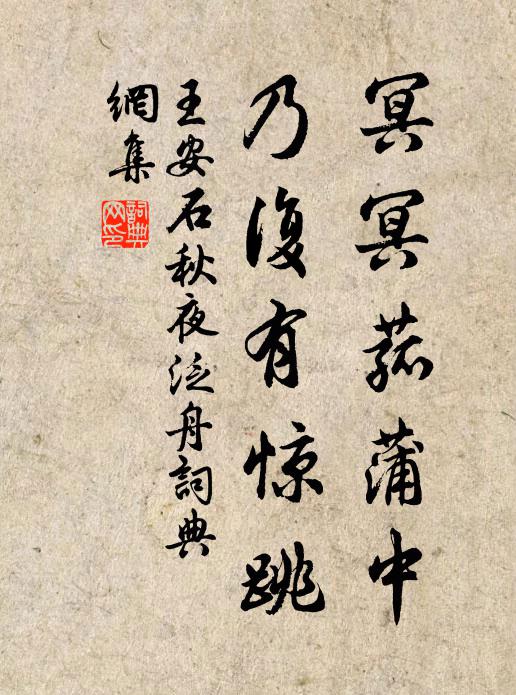 冥冥菰蒲中
乃復有惊跳
王安石秋夜泛舟詞典
網集
詞典
网印